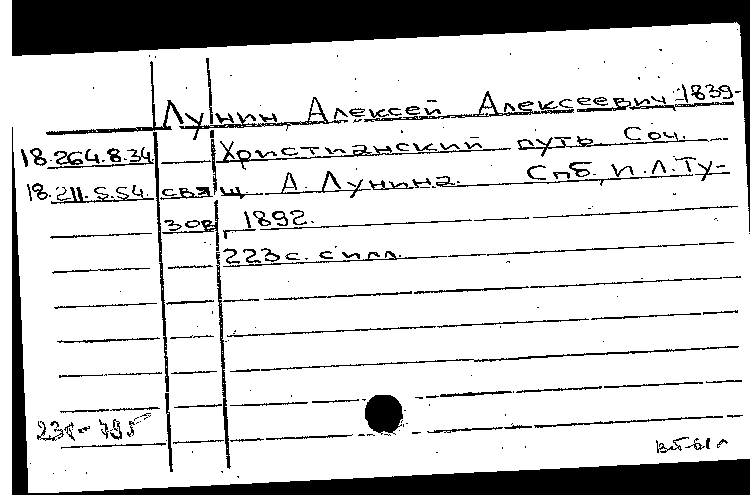 Лунин, Алексей Алексеевич, 1839-
18.264.8.34 Христианский путь Соч.
18.211.5.54. свящ А. Лунина. Спб, И.Л.Ту-
зов, 1892.
223 с. с илл.